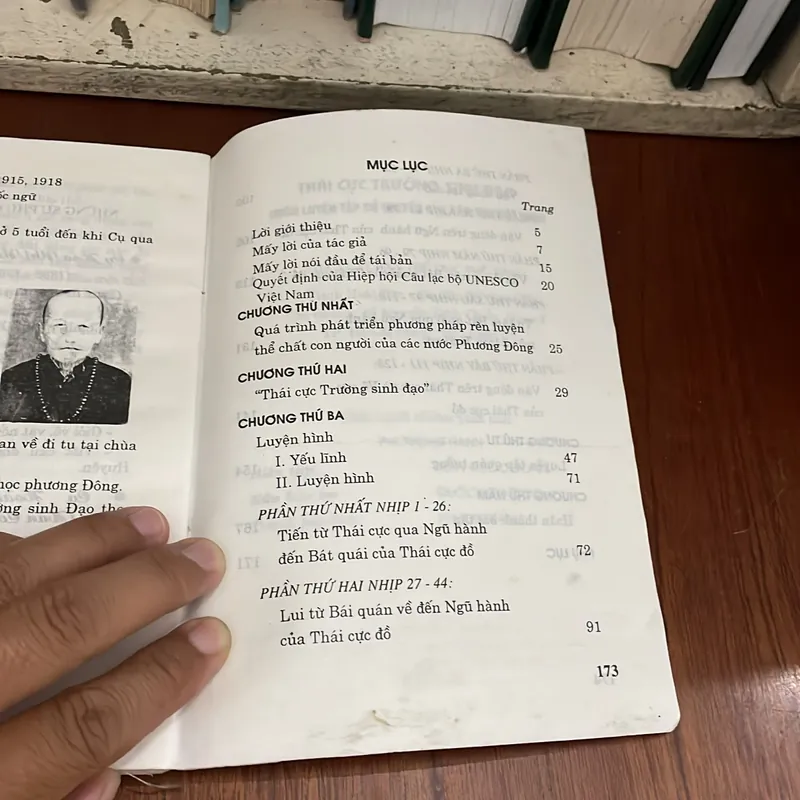 1915, 1918
ốc ngữ
ở 5 tuổi đến khi Cụ qua
an về đi tu tại chùa
học phương Đông.
ng sinh Đạo the
MỤC LỤC
Trang
Lời giới thiệu 5
Mấy lời của tác giả 7
Mấy lời nói đầu để tái bản 15
Quyết định của Hiệp hội Câu lạc bộ UNESCO 20
Việt Nam
CHƯƠNG THỨ NHẤT
Quá trình phát triển phương pháp rèn luyện
thể chất con người của các nước Phương Đông 25
CHƯƠNG THỨ HAI
"Thái cực Trường sinh đạo" 29
CHƯƠNG THỨ BA
Luyện hình
I. Yếu lĩnh 47
II. Luyện hình 71
PHẦN THỨ NHẤT NHỊP 1 - 26:
Tiến từ Thái cực qua Ngũ hành
đến Bát quái của Thái cực đồ 72
PHẦN THỨ HAI NHỊP 27 - 44:
Lui từ Bái quán về đến Ngũ hành
của Thái cực đồ 91
173